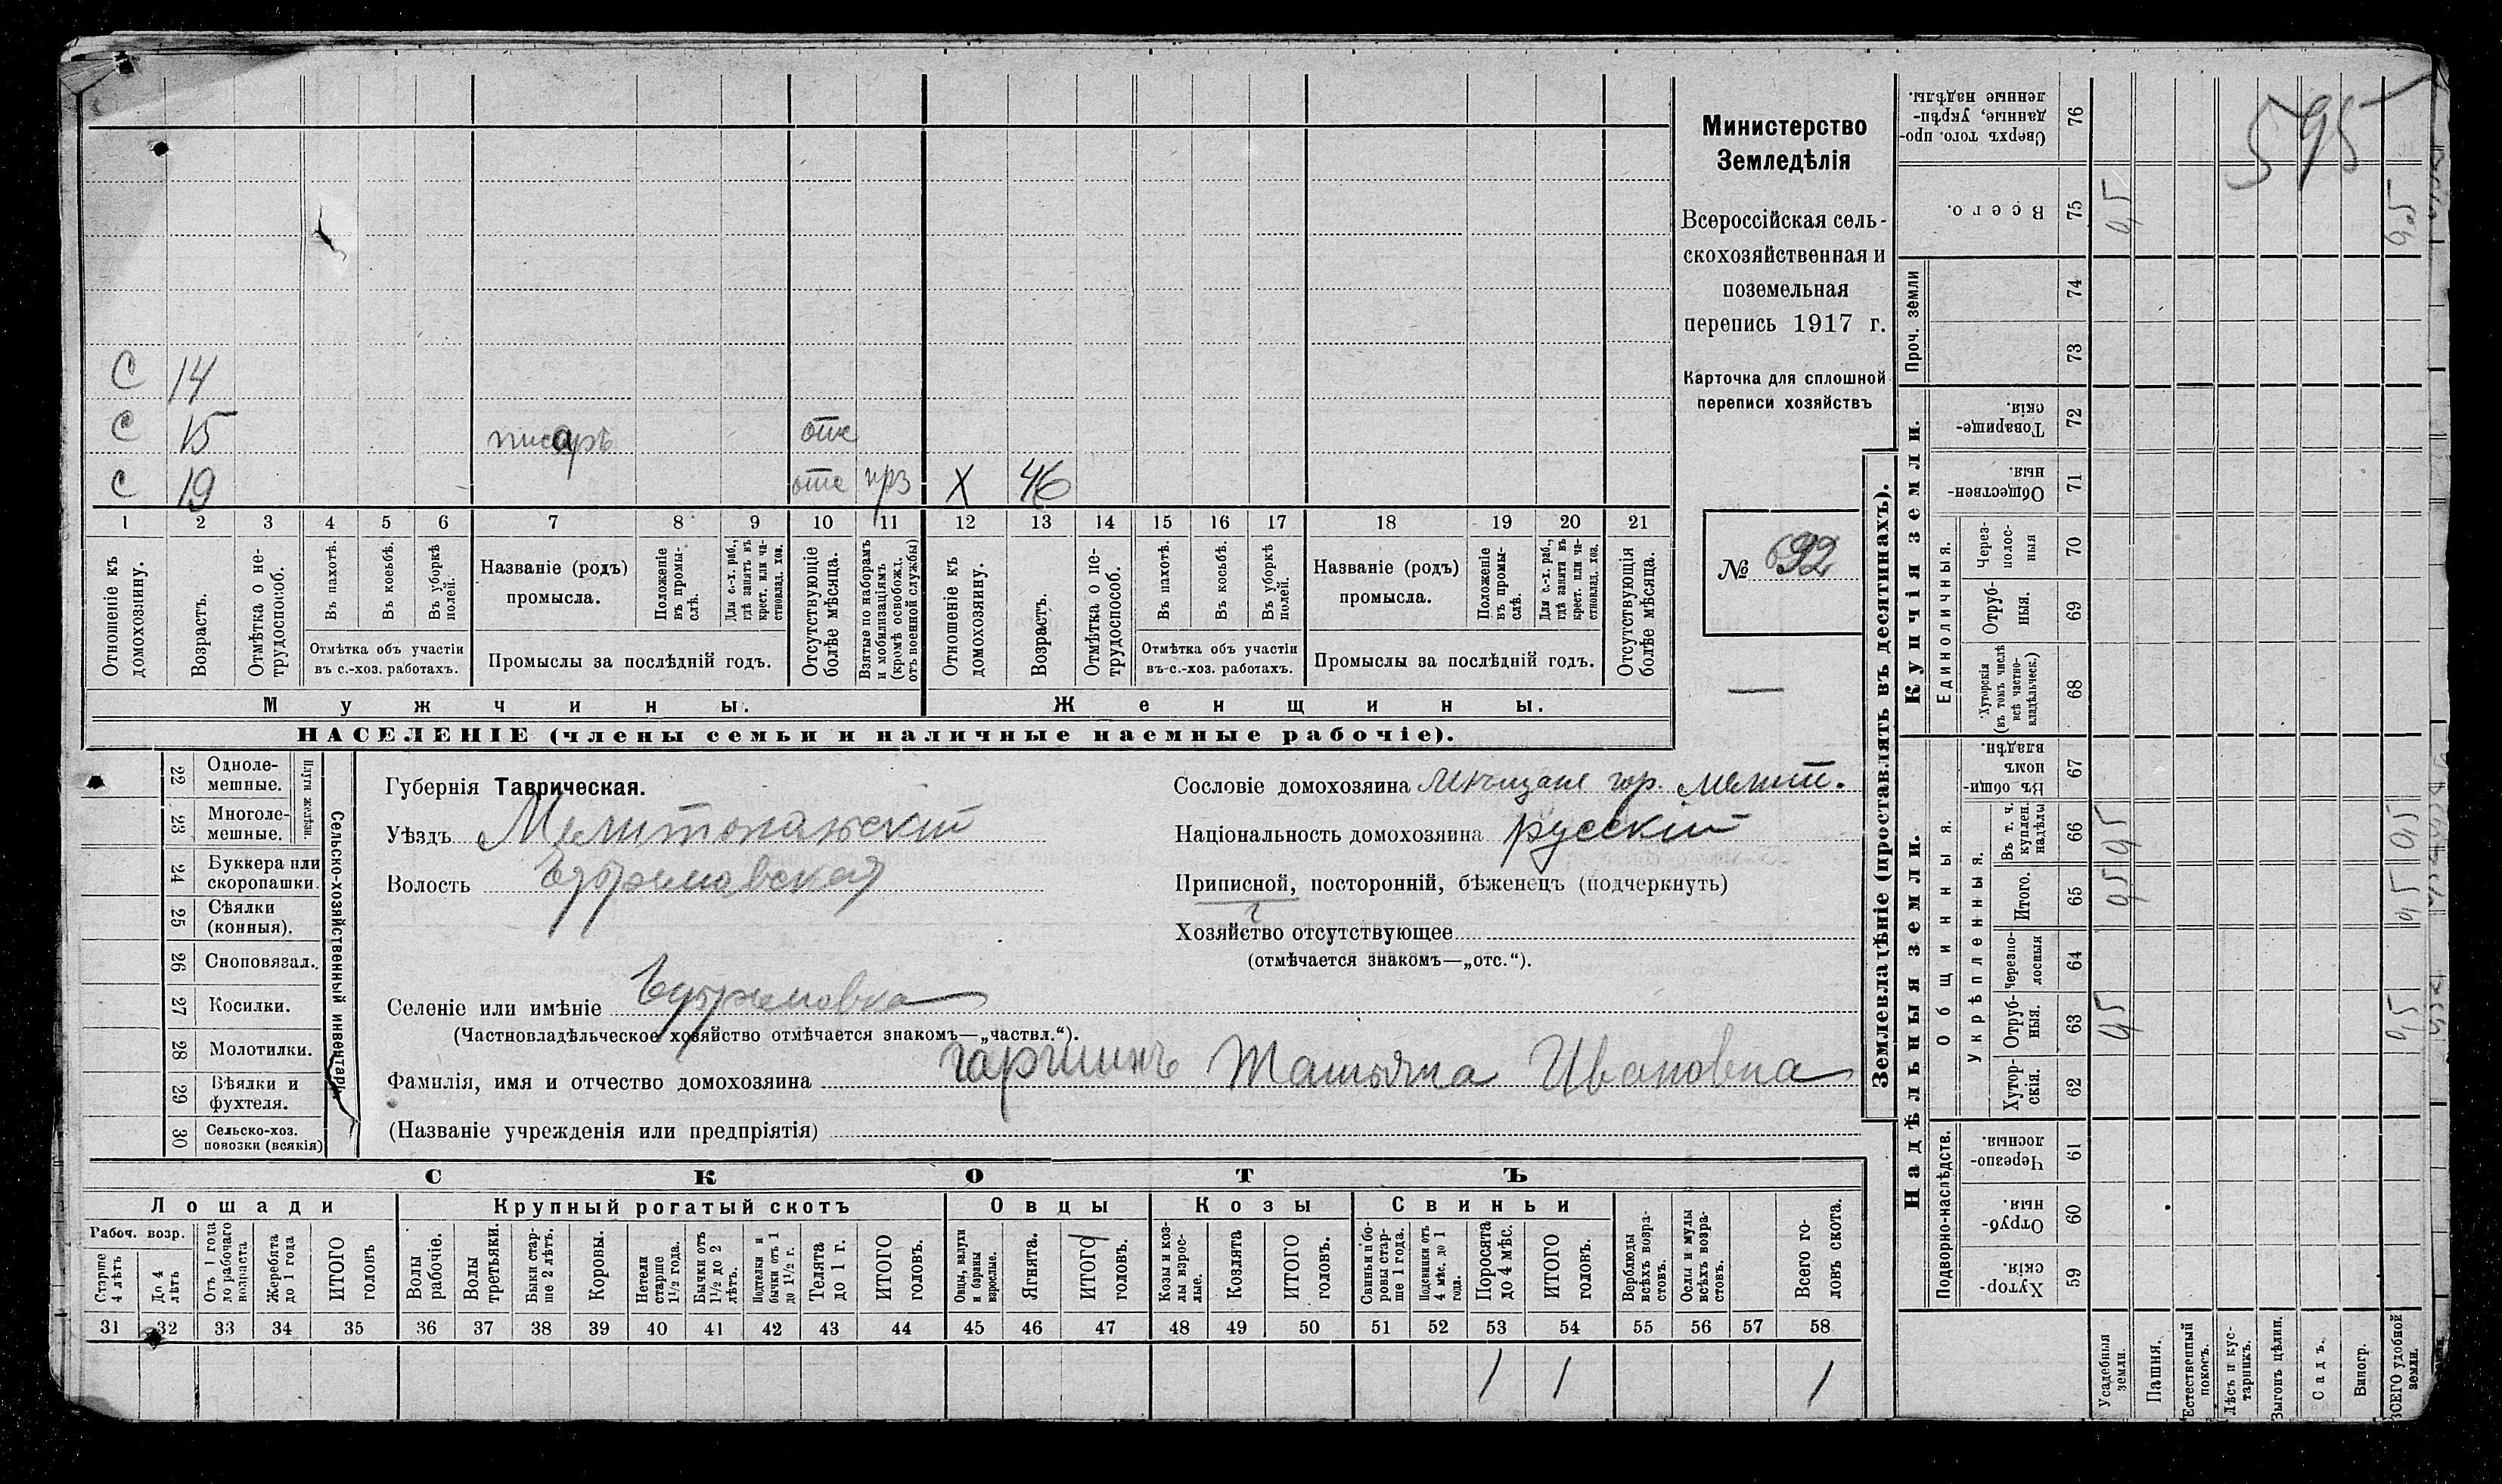 Министерство
Земледѣлія
Всероссійская сель-
скохозяйственная и
поземельная
перепись 1917 г.
Карточка для сплошной
переписи хозяйствъ
№ 692
595
С 14
С 15 писарь отс
С 19 отс прз Х 46
1 2 3 4 5 6 7 8 9 10 11 12 13 14 15 16 17 18 19 20 21
Отношеніе къ домохозяину.
Возрастъ.
Отмѣтка о не-трудоспособ.
Въ пахотѣ.
Въ косьбѣ.
Въ уборкѣ полей.
Отмѣтка объ участіи
въ с.-хоз. работахъ.
Названіе (родъ)
промысла.
Положеніе въ промы-слѣ.
Для с.-х. раб., гдѣ занятъ въ крест. или ча-стновлад. хоз.
Промыслы за послѣдній годъ.
Отсутствующіе болѣе мѣсяца.
Взятые по наборамъ и мобилизаціямъ (кромѣ освобожд. отъ военной службы)
Отношеніе къ домохозяину.
Возрастъ.
Отмѣтка о не-трудоспособ.
Въ пахотѣ.
Въ косьбѣ.
Въ уборкѣ полей.
Отмѣтка объ участіи
въ с.-хоз. работахъ.
Названіе (родъ)
промысла.
Положеніе въ промы-слѣ.
Для с.-х. раб., гдѣ занята въ крест. или ча-стновлад. хоз.
Промыслы за послѣдній годъ.
Отсутствующія болѣе мѣсяца.
Мужчины. Женщины.
НАСЕЛЕНІЕ (члены семьи и наличные наемные рабочіе).
Сельско-хозяйственный инвентарь
Плуги желѣзн.
22 Одноле-мешные.
23 Многоле-мешные.
24 Буккера или скоропашки.
25 Сѣялки (конныя).
26 Сноповязал.
27 Косилки.
28 Молотилки.
29 Вѣялки и фухтеля.
30 Сельско-хоз. повозки (всякія)
Губернія Таврическая.
Уѣздъ Мелитопольскій
Волость
Селеніе или имѣніе
(Частновладѣльческое хозяйство отмѣчается знакомъ—„частвл.“).
Фамилія, имя и отчество домохозяина Гаршинъ Татьяна Ивановна
(Названіе учрежденія или предпріятія)
Сословіе домохозяина мѣщане гор. Мелит.
Національность домохозяина русскій
Приписной, посторонній, бѣженецъ (подчеркнуть)
Хозяйство отсутствующее
(отмѣчается знакомъ—„отс.“).
СКОТЪ
Лошади Крупный рогатый скотъ Овцы Козы Свиньи
Рабоч. возр.
Старше 4 лѣтъ
До 4 лѣтъ
Отъ 1 года до рабочаго возраста
Жеребята до 1 года
ИТОГО головъ
Волы рабочіе.
Волы третьяки.
Быки стар-ше 2 лѣтъ.
Коровы.
Нетели старше 1½ года.
Бычки отъ 1½ до 2 лѣтъ.
Подтелки и бычки отъ 1 до 1½ г.
Телята до 1 г.
ИТОГО головъ.
Овцы, валухи и бараны взрослые.
Ягнята.
ИТОГО головъ.
Козы и коз-лы взрос-лые.
Козлята
ИТОГО головъ.
Свиньи и бо-ровы стар-ше 1 года.
Подсвинки отъ 4 мѣс. до 1 года.
Поросята до 4 мѣс.
ИТОГО головъ.
Верблюды всѣхъ возра-стовъ.
Ослы и мулы всѣхъ возра-стовъ.
Всего го-ловъ скота.
31 32 33 34 35 36 37 38 39 40 41 42 43 44 45 46 47 48 49 50 51 52 53 54 55 56 57 58
1 1 1
Землевладѣніе (проставлять въ десятинахъ).
Надѣльныя земли. Купчія земли. Проч. земли
Подворно-наслѣдств.
Общинныя.
Укрѣпленныя.
Единоличныя.
59 Хутор-скія.
60 Отруб-ныя.
61 Черезпо-лосныя.
62 Хутор-скія.
63 Отруб-ныя. 0,5 0,5
64 Черезпо-лосныя
65 Итого. 0,5 0,5
66 Въ т. ч. куплен. надѣлы 0,5 0,5
67 Въ общин-номъ владѣн.
68 Хуторскія (въ томъ числѣ всѣ частно-владѣльческ.)
69 Отруб-ныя.
70 Через-полос-ныя
71 Обществен-ныя.
72 Товарище-скія.
73
74
75 Всего. 0,5 0,5
76 Сверхъ того, про-данные, укрѣп-ленные надѣлы.
Усадебныя земли.
Пашня.
Естественный покосъ.
Лѣсъ и кус-тарникъ.
Выгонъ цѣлин.
Садъ.
Виногр.
ВСЕГО удобной земли.